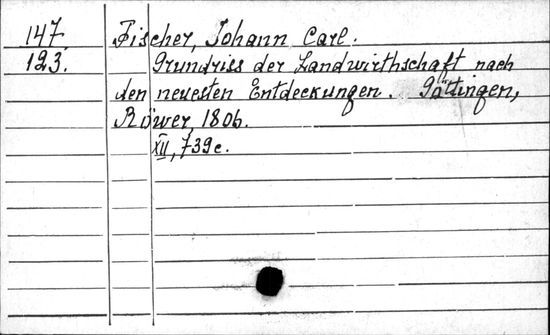 147. Fischer, Johann Carl.
123. Grundriss der Landwirthschaft nach
den neuesten Entdeckungen. Göttingen,
Röwer, 1806.
XII, 739 c.